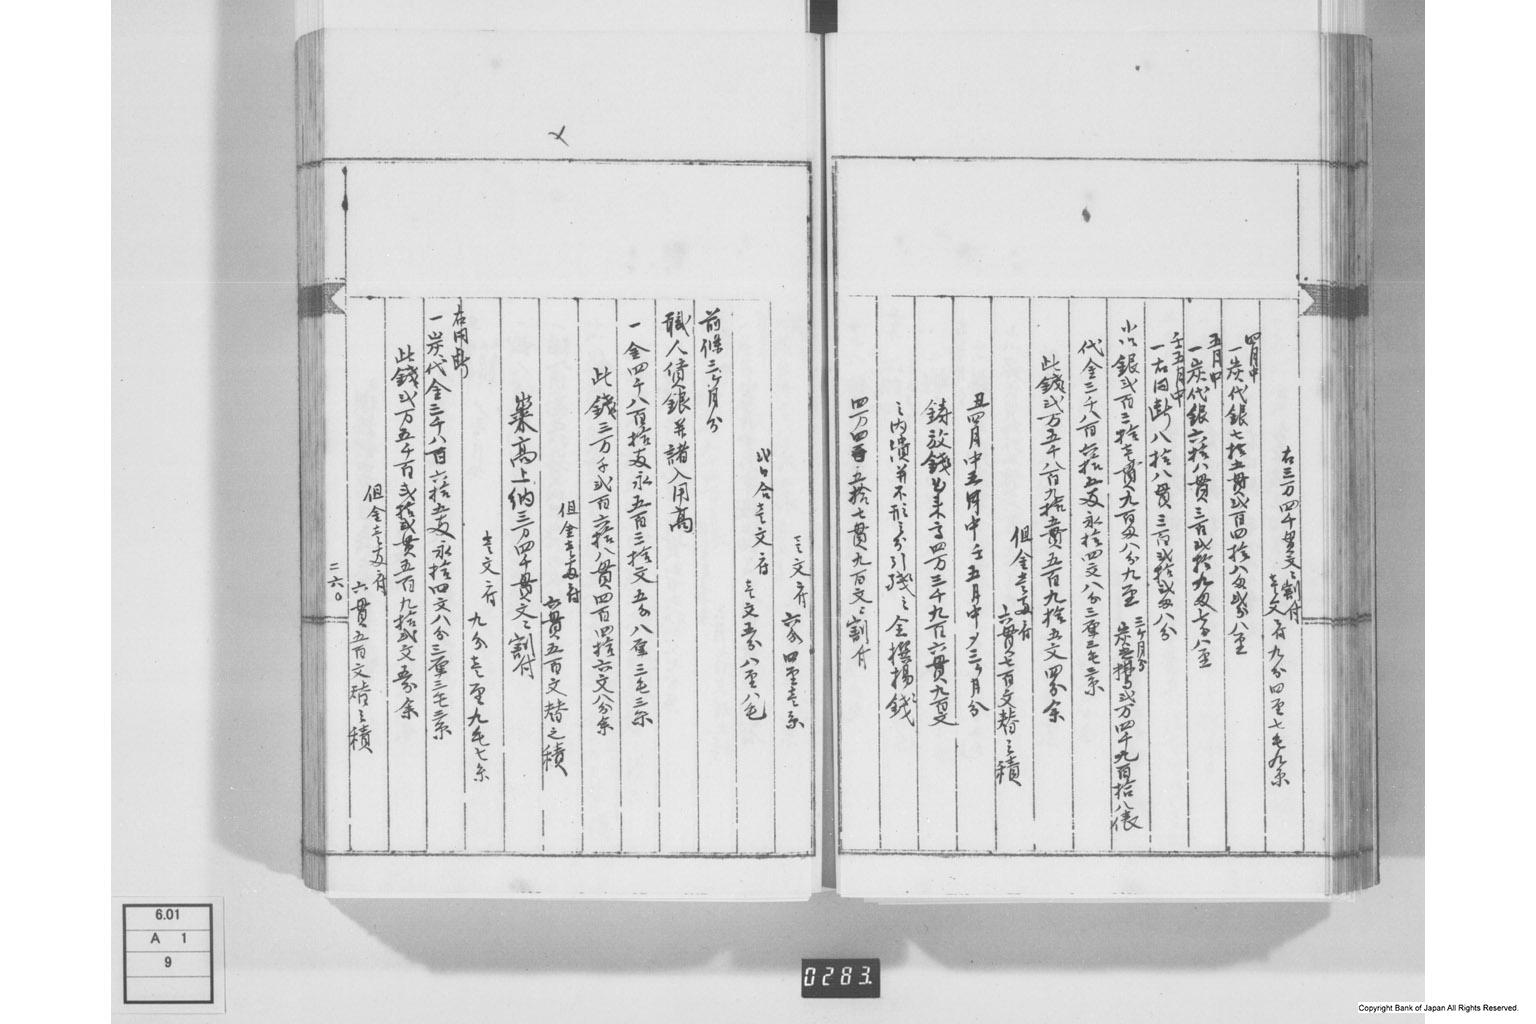 右三万四千貫文ニ割付
壱文ニ付九分四厘七毛九糸
四月中
一炭代銀七拾五貫弐百四拾八匁弐分八厘
五月中
一炭代銀六拾八貫三百弐拾九匁七分八厘
壬五月中
一右同断八拾八貫三百弐拾弐匁八分
小以銀弐百三拾壱貫九百匁八分九厘
三ヶ月分
炭 弐万四千九百拾八俵
代金三千八百六拾五両永拾四文八分三厘三毛三糸
此銭弐万五千八百九拾五貫五百九拾五文四分余
但金壱両ニ付
六貫七百文替之積
丑四月中五月中壬五月中〆三ヶ月分
鋳放銭出来高四万三千九百六貫九百文
之内潰并不形之分引残之全撰揚銭
四万四百五拾七貫九百文ニ割付
壱文ニ付
六分四厘壱糸
此口合壱文ニ付
壱文五分八厘八毛
前条三ヶ月分
職人賃銀并諸入用高
一金四千八百拾両永五百三拾文五分八厘三毛三糸
此銭三万千弐百六拾八貫四百四拾六文八分余
但金壱両ニ付
六貫五百文替之積
業高上納三万四千貫文ニ割付
壱文ニ付
九分壱厘九毛七糸
右同断
一炭代金三千八百六拾五両永拾四文八分三厘三毛三糸
此銭弐万五千百弐拾弐貫五百九拾弐文五分余
但金壱両ニ付
六貫五百文替之積
二六〇
6.01
A 1
9
0283.
Copyright Bank of Japan All Rights Reserved.